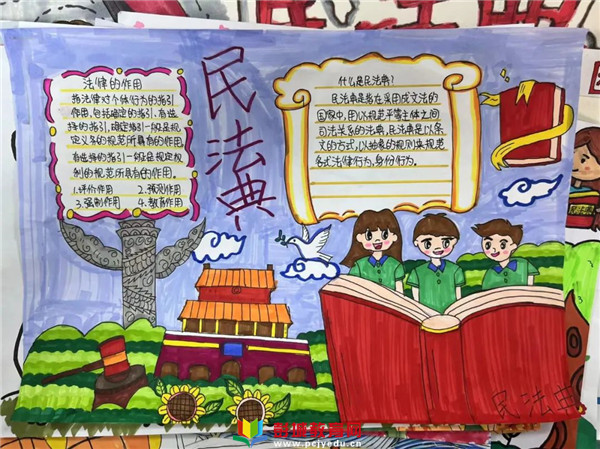 法律的作用
指法律对个体行为的指引
作用,包括确定的指引、有选
择的指引,确定指引一般是规
定义务的规范所具有的作用
有选择的指引一般是规定权
利的规范所具有的作用。
1.评价作用 2.预测作用
3.强制作用 4.教育作用
民法典
什么是民法典?
民法典是指在采用成文法的
国家中,用以规范平等主体之间
司法关系的法典,民法典是以条
文的方式,以抽象的规则来规范
各式法律行为,身份行为。
民法典
www.pcjyedu.cn